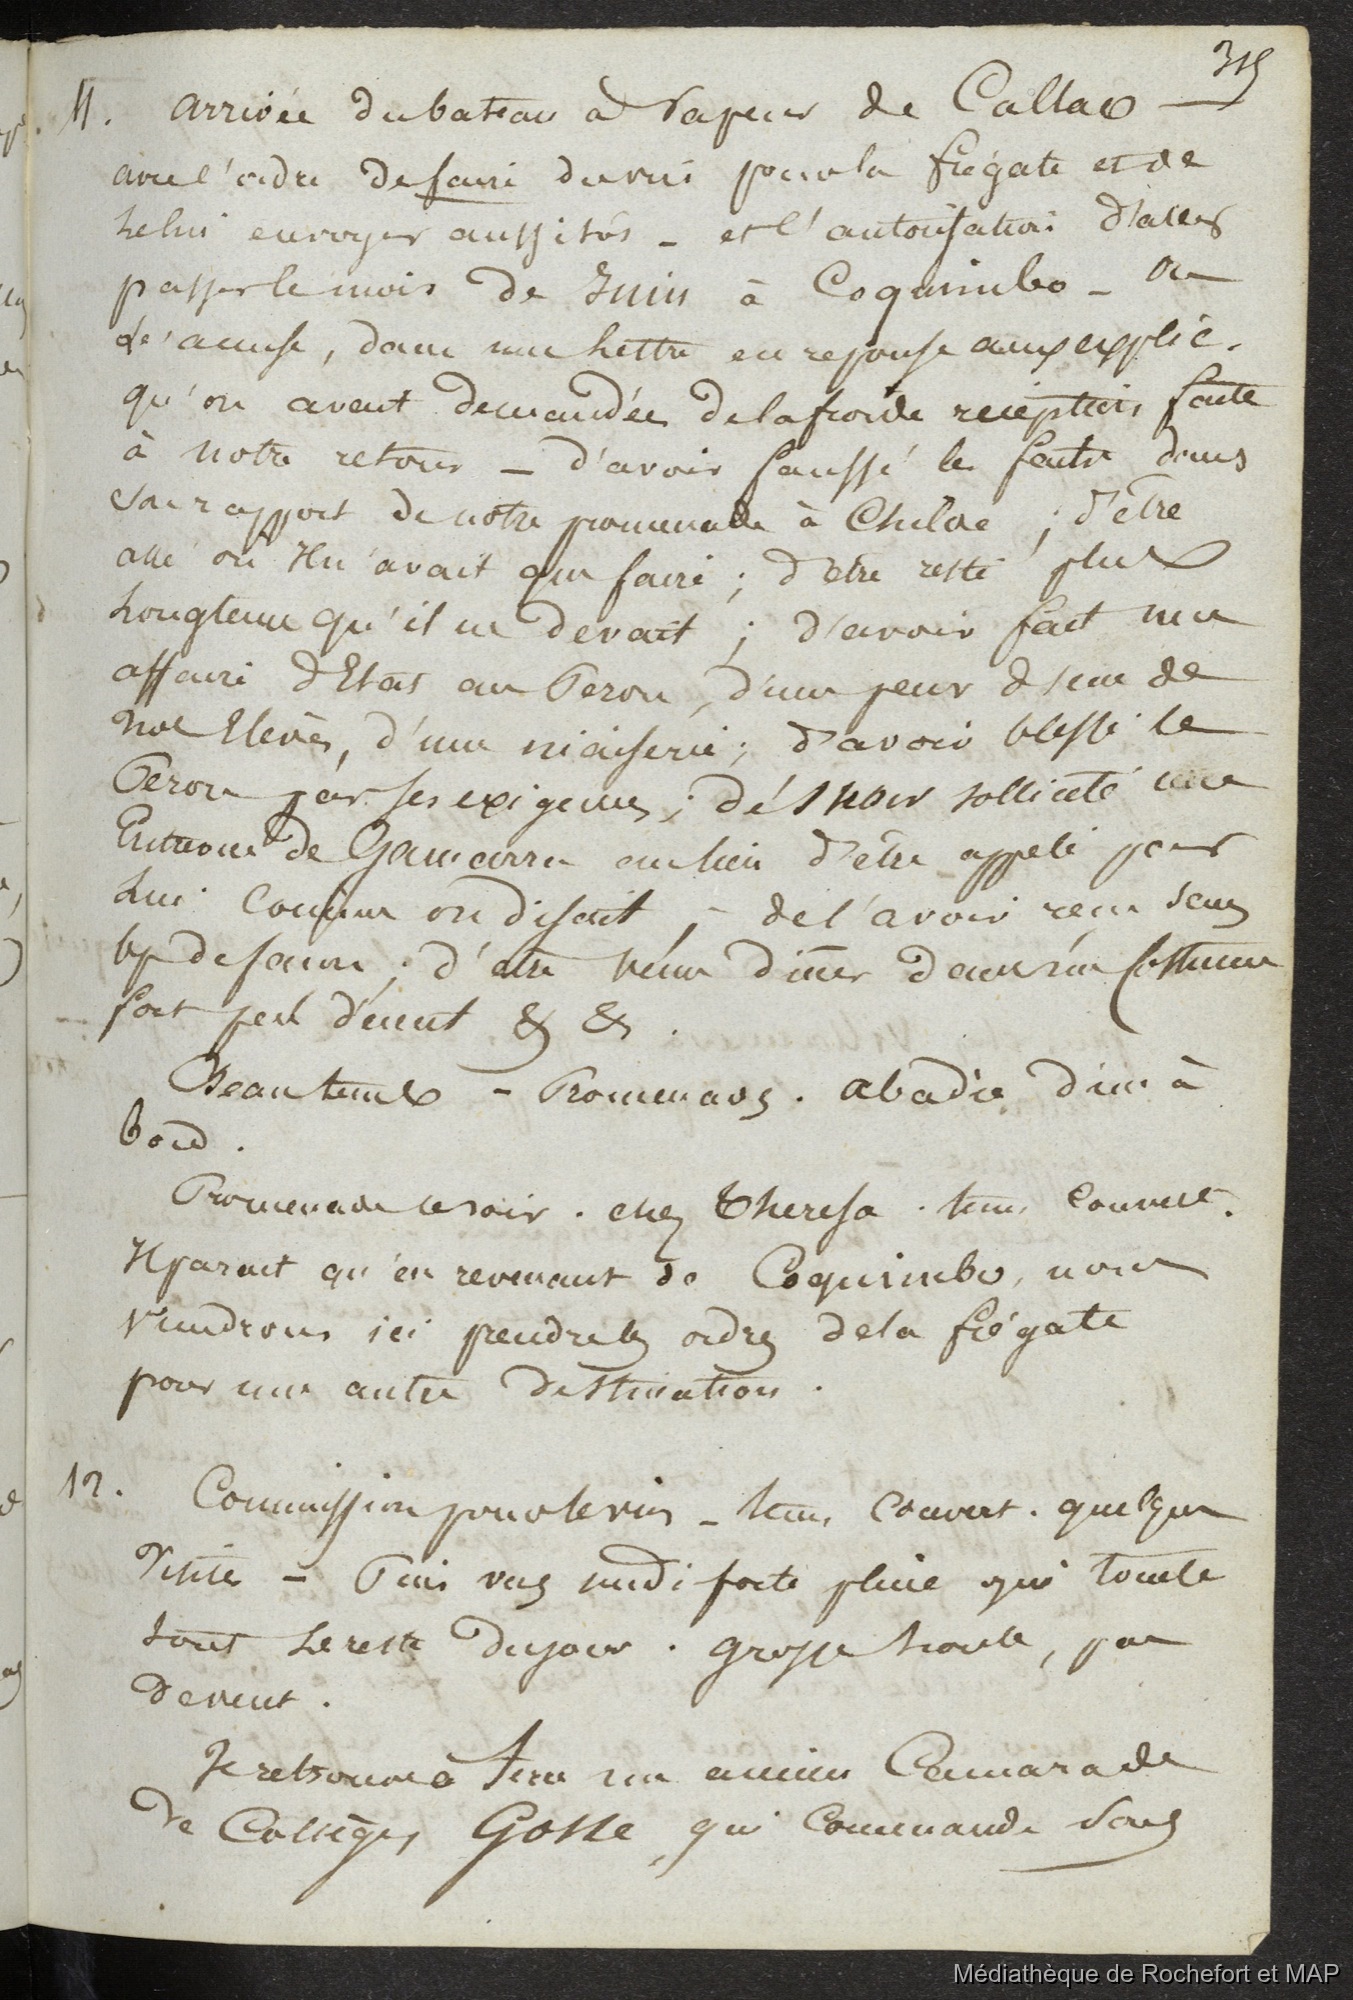 315
11. arrivée du bateau à vapeur de Callao —
avec l'ordre de faire du vin pour la frégate et de
le lui envoyer aussitôt - et l'autorisation d'aller
passer le mois de Juin à Coquimbo - On
l'accuse, dans une lettre en reponse aux explic.
qu'on avait demandées de la froide reception faite
à notre retour - d'avoir faussé les faits dans
son rapport de notre promenade à Chiloe ; d'être
allé où il n'avait que faire ; d'être resté plus
longtems qu'il ne devait ; d'avoir fait une
affaire d'Etat au Perou, d'une peur d'un de
nos Elèves, d'une niaiserie ; d'avoir blessé le
Perou par ses exigences ; d'avoir sollicité une
Entrevue de Gamarra au lieu d'être appelé par
lui comme on disait ; de l'avoir reçu sans
bp de façon ; d'être venu diner dans un costume
fort peu décent & &.
Beau tems - Promenade. Abadie dine à
bord.
Promenade le soir. chez Theresa. tems couvert.
Il parait qu'en revenant de Coquimbo, nous
viendrons ici prendre les ordres de la frégate
pour une autre destination.
12. Commission pour le vin - tems couvert. quelques
visites - Puis vers midi forte pluie qui tombe
tout le reste du jour. grosse houle, pas
de vent.
Je retrouve à terre un ancien Camarade
de Collège, Gosse, qui commande sous
Médiathèque de Rochefort et MAP